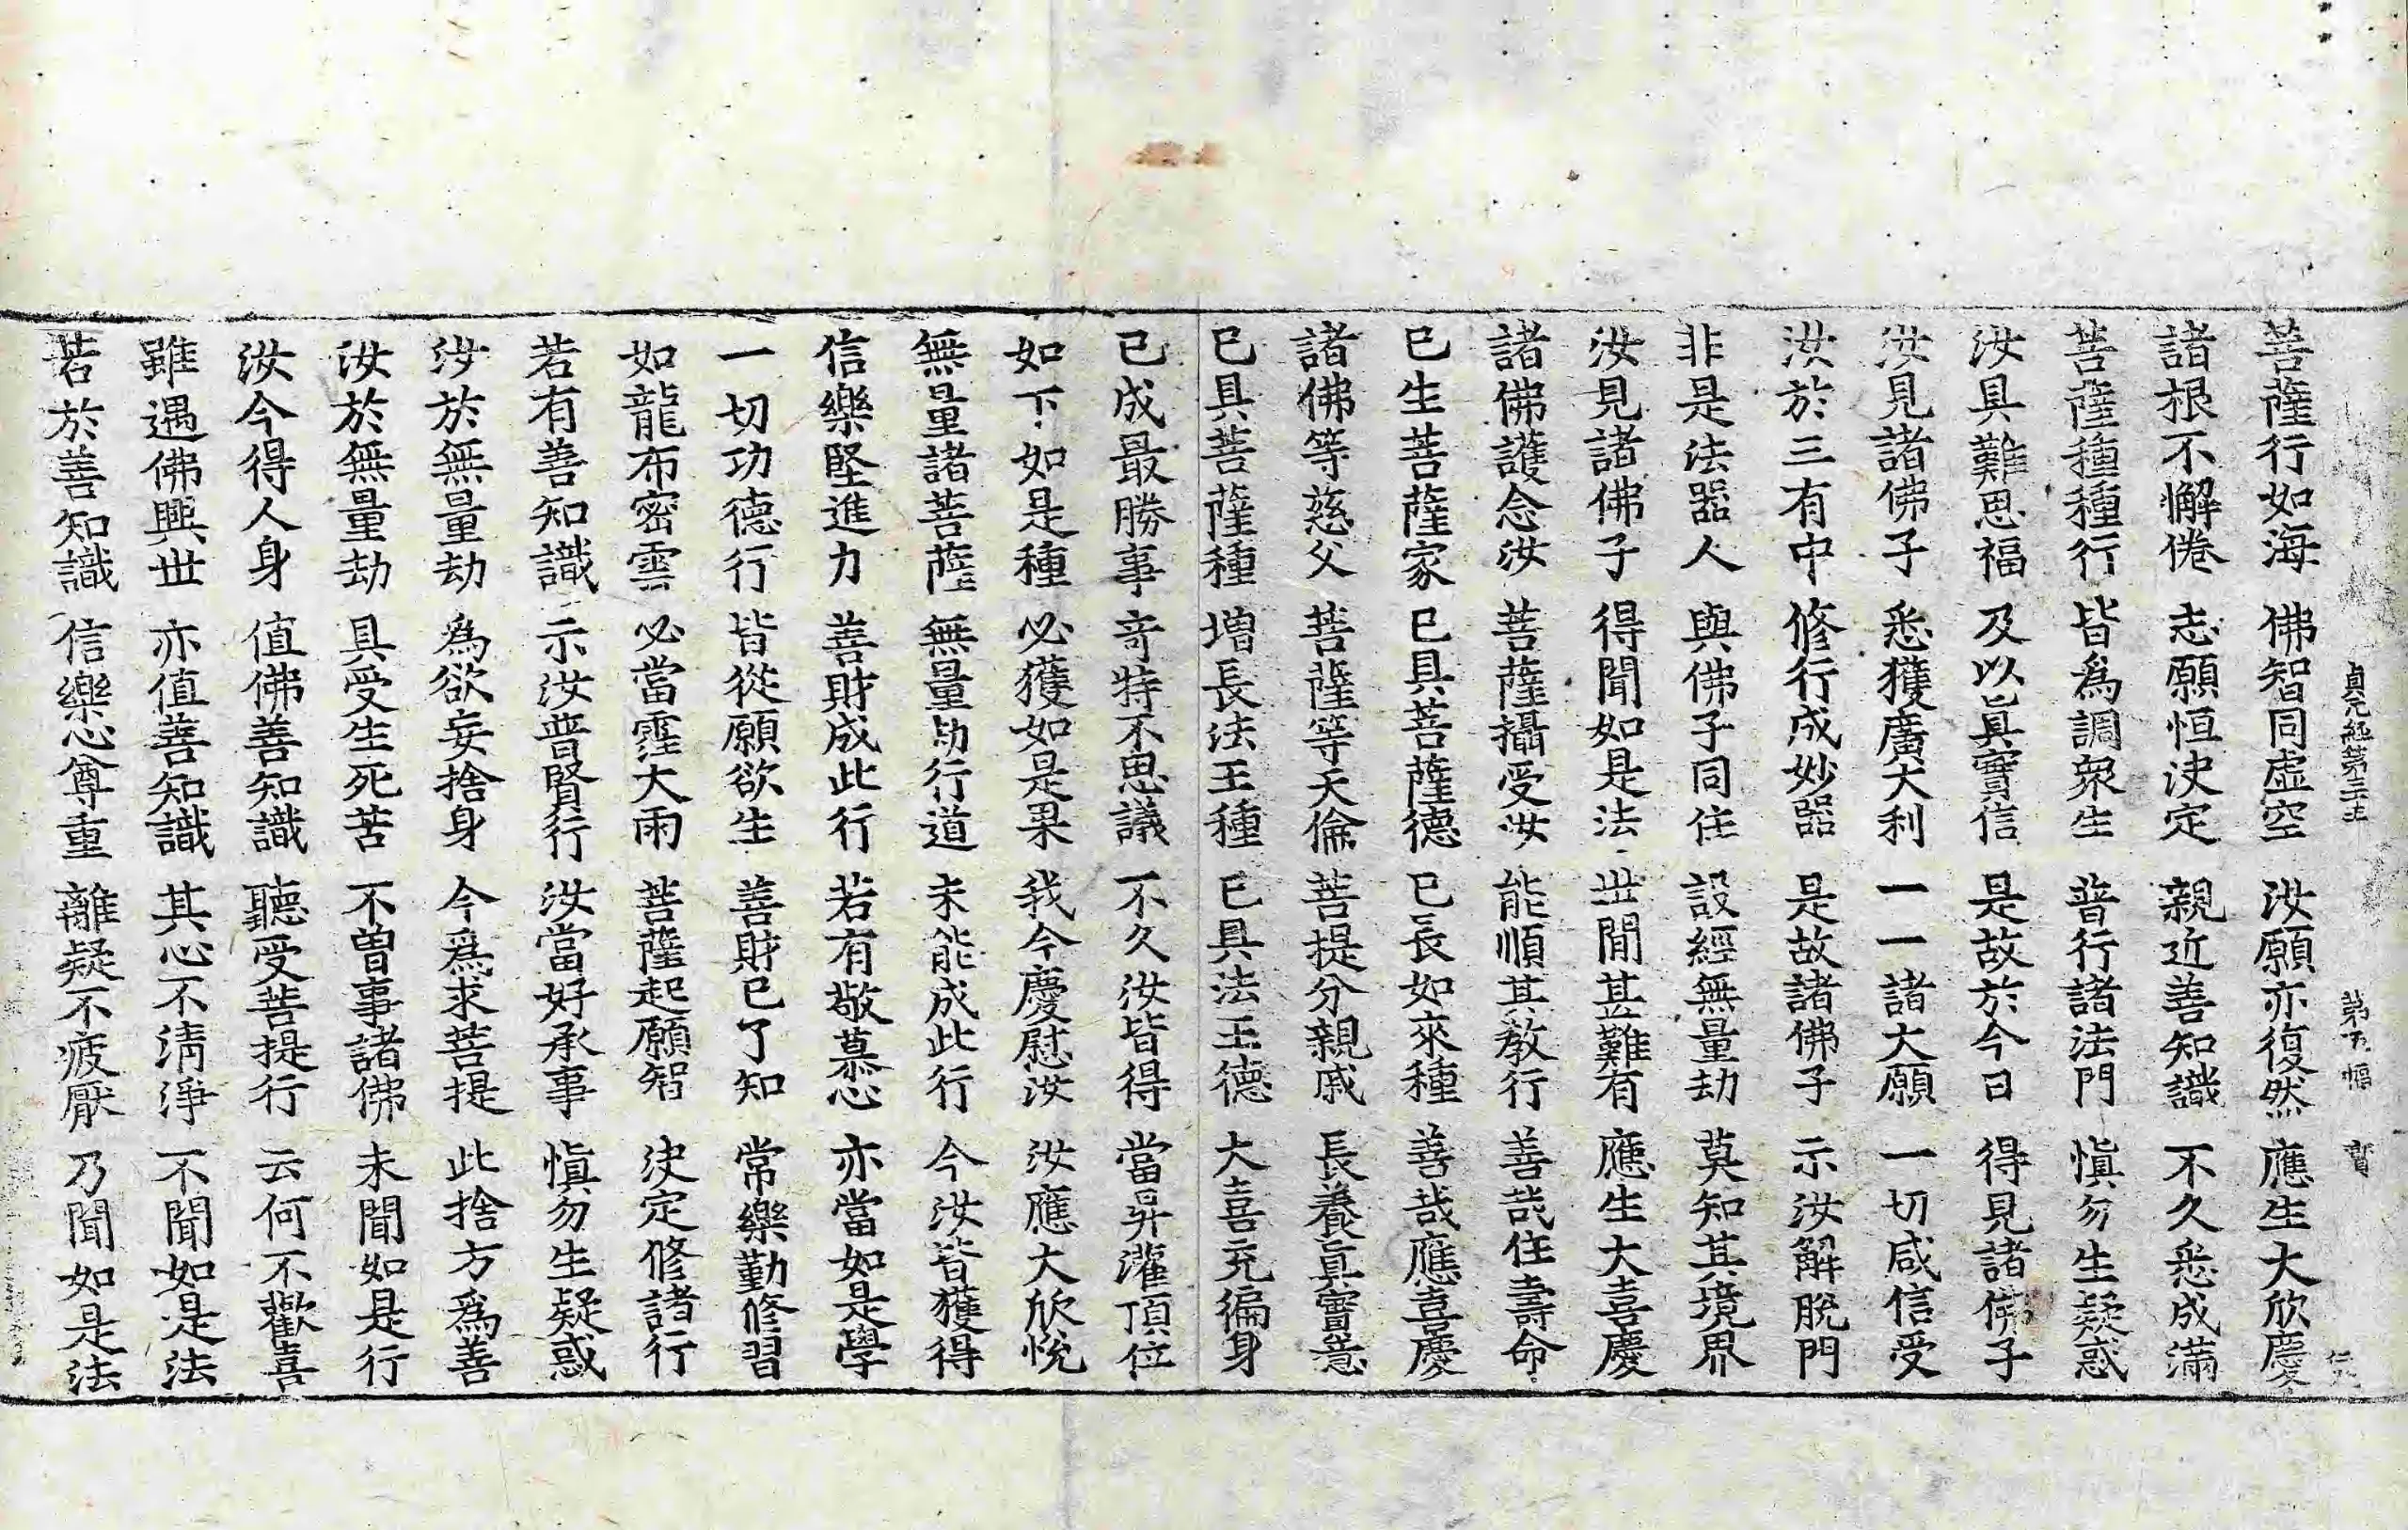 貞元經第三十五 第五幅 寶
菩薩行如海 佛智同虛空 汝願亦復然 應生大欣慶
諸根不懈倦 志願恒決定 親近善知識 不久悉成滿
菩薩種種行 皆爲調衆生 普行諸法門 愼勿生疑惑
汝具難思福 及以眞實信 是故於今日 得見諸佛子
汝見諸佛子 悉獲廣大利 一一諸大願 一切咸信受
汝於三有中 修行成妙器 是故諸佛子 示汝解脫門
非是法器人 與佛子同住 設經無量劫 莫知其境界
汝見諸佛子 得聞如是法 世間甚難有 應生大喜慶
諸佛護念汝 菩薩攝受汝 能順其教行 善哉住壽命
已生菩薩家 已具菩薩德 已長如來種 善哉應喜慶
諸佛等慈父 菩薩等天倫 菩提分親戚 長養眞實意
已具菩薩種 增長法王種 已具法王德 大喜充徧身
已成最勝事 奇特不思議 不久汝皆得 當昇灌頂位
如下如是種 必獲如是果 我今慶慰汝 汝應大欣悅
無量諸菩薩 無量劫行道 未能成此行 今汝皆獲得
信樂堅進力 善財成此行 若有敬慕心 亦當如是學
一切功德行 皆從願欲生 善財已了知 常樂勤修習
如龍布密雲 必當霔大雨 菩薩起願智 決定修諸行
若有善知識 示汝普賢行 汝當好承事 愼勿生疑惑
汝於無量劫 爲欲妄捨身 今爲求菩提 此捨方爲善
汝於無量劫 具受生死苦 不曾事諸佛 未聞如是行
汝今得人身 值佛善知識 聽受菩提行 云何不歡喜
雖遇佛興世 亦值善知識 其心不清淨 不聞如是法
若於善知識 信樂心尊重 離疑不疲厭 乃聞如是法